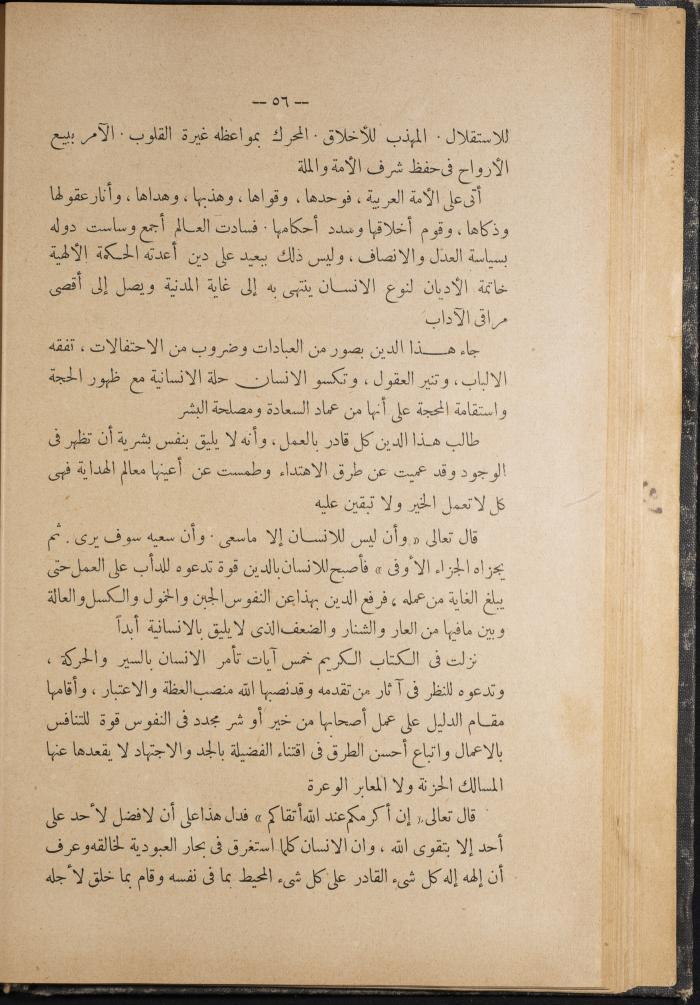 — ٥٦ —
للاستقلال · المهذب للأخلاق · المحرك بمواعظه غيرة القلوب · الآمر ببيع
الأرواح فى حفظ شرف الأمة والملة
أتى على الأمة العربية ، فوحدها ، وقواها ، وهذبها ، وهداها ، وأنار عقولها
وذكاها ، وقوم أخلاقها وسدد أحكامها · فسادت العالم أجمع وساست دوله
بسياسة العدل والانصاف ، وليس ذلك ببعيد على دين أعدته الحكمة الألهية
خاتمة الأديان لنوع الانسان ينتهى به إلى غاية المدنية ويصل إلى أقصى
مراقى الآداب
جاء هذا الدين بصور من العبادات وضروب من الاحتفالات ، تفقه
الالباب ، وتنير العقول ، وتكسو الانسان حلة الانسانية مع ظهور الحجة
واستقامة المحجة على أنها من عماد السعادة ومصلحة البشر
طالب هذا الدين كل قادر بالعمل ، وأنه لا يليق بنفس بشرية أن تظهر فى
الوجود وقد عميت عن طرق الاهتداء وطمست عن أعينها معالم الهداية فهى
كل لا تعمل الخير ولا تبقين عليه
قال تعالى « وأن ليس للانسان إلا ماسعى · وأن سعيه سوف يرى . ثم
يجزاه الجزاء الأوفى » فأصبح للانسان بالدين قوة تدعوه للدأب على العمل حتى
يبلغ الغاية من عمله ، فرفع الدين بهذا عن النفوس الجبن والخمول والكسل والعالة
وبين مافيها من العار والشنار والضعف الذى لا يليق بالانسانية أبداً
نزلت فى الكتاب الكريم خمس آيات تأمر الانسان بالسير والحركة ،
وتدعوه للنظر فى آثار من تقدمه وقد نصبها الله منصب العظة والاعتبار ، وأقامها
مقام الدليل على عمل أصحابها من خير أو شر مجدد فى النفوس قوة للتنافس
بالاعمال واتباع أحسن الطرق فى اقتناء الفضيلة بالجد والاجتهاد لا يقعدها عنها
المسالك الحزنة ولا المعابر الوعرة
قال تعالى « إن أكرمكم عند الله أتقاكم » فدل هذا على أن لا فضل لأحد على
أحد إلا بتقوى الله ، وان الانسان كلما استغرق فى بحار العبودية لخالقه وعرف
أن إلهه إله كل شىء القادر على كل شىء المحيط بما فى نفسه وقام بما خلق لأجله